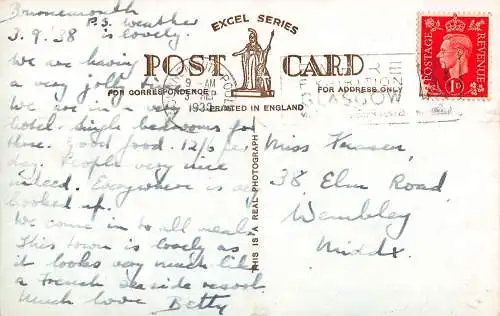 Bournemouth
P.S. Weather
is lovely.
3.9.'38
We are having
a very jolly
We are in a very
hotel. Single bedrooms for
three. Good food. 12/6 per
day. People very nice
indeed. Everywhere is all
booked up.
We come in to all meals.
This town is lovely as
it looks very much like
a French seaside resort
Much love Betty
EXCEL SERIES
POST CARD
FOR CORRESPONDENCE
FOR ADDRESS ONLY
PRINTED IN ENGLAND
THIS IS A REAL PHOTOGRAPH
9 - AM
GLASGOW
POSTAGE
REVENUE
1D
Miss
38, Elm Road,
Wembley
Middx.